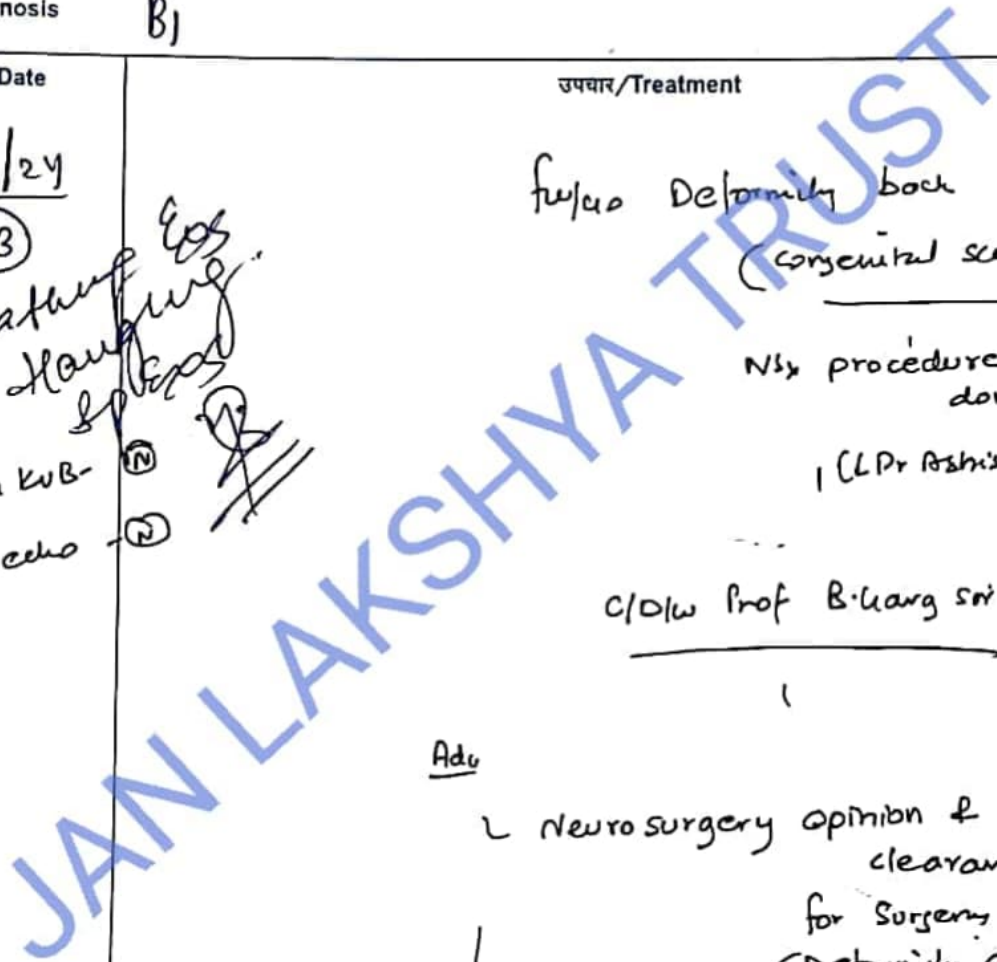 nosis
Date
उपचार/Treatment
/24
3
Eos
Hanging
Eos
KUB- N
echo - N
fu/c/o Deformity back
(congenital sc
NSx procedure
do
(LDr Ashis
C/D/w Prof B.Garg sir
Adv
Neurosurgery opinion &
clearan
for Surgery
JAN LAKSHYA TRUST